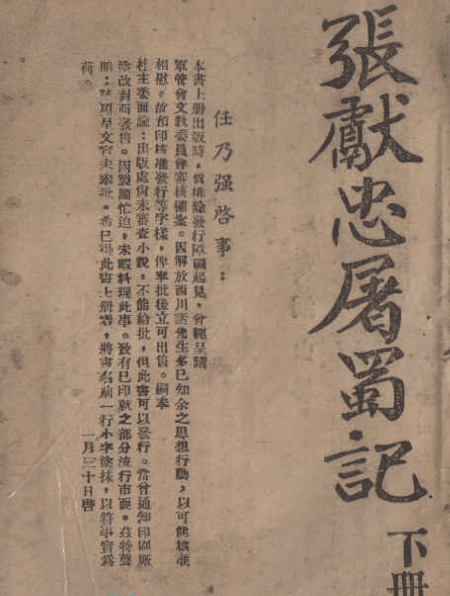 張獻忠屠蜀記
下冊
任乃强啓事：
本書上册出版時，爲排除發行障礙起見，曾經呈請
軍管會文教委員會審核備案。因解放西川諸先生多已知余之思想行動，以可能核准
相慰。故預印核准發行等字樣，俾奉批後立可出售。嗣奉
杜主委面諭：出版處尙未審査小說，不能給批，但此書可以發行。當曾通知印刷廠
除改封面發售。因製圖忙迫，未暇料理此事。致有已印就之部分流行市面。茲特聲
明：該項呈文實未奉批。希已得此書上册者，將書名前一行小字塗抹，以符事實爲
荷。
一月三十日啓